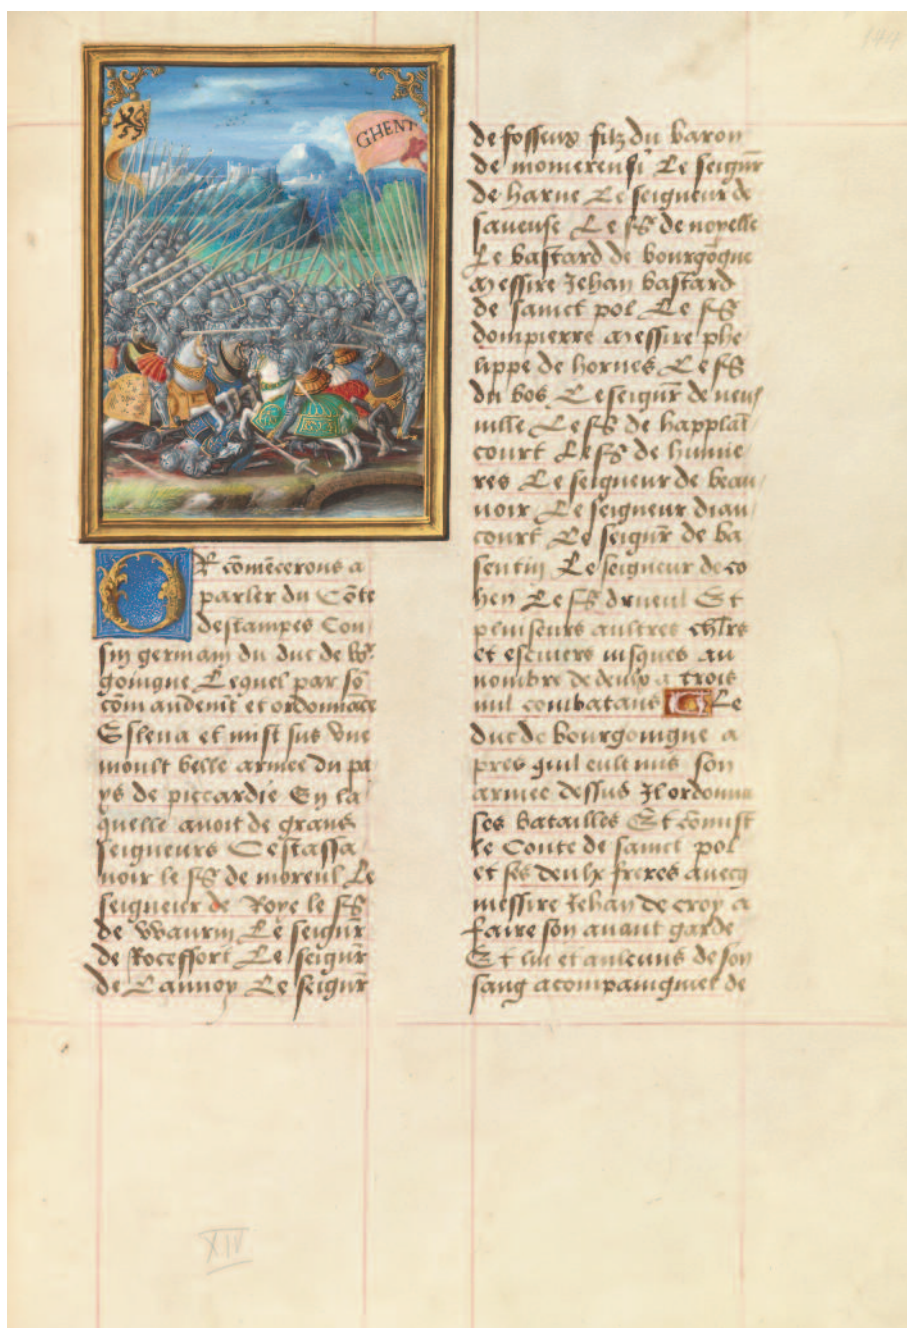 GHENT
144
OR cōmēcerons a
parler du Cōte
destampes Cou
sin germain du duc de bor
goingne Lequel par sō
cōmandemēt et ordonnāce
Esleua et mist sus vne
moult belle armee du pa
ys de piccardie En la
quelle auoit de grans
seigneurs Cestassa
uoir le sgr de moreul Le
seigneur de Roye le sgr
de Waurin Le seignr
de Roceffort Le seignr
de Lannoy Le seignr
de fosseux filz du baron
de momerensi Le seignr
de harue Le seigneur de
saueuse Le sgr de noyelle
Le bastard de bourgōgne
Messire Jehan bastard
de sainct pol Le sgr
dompierre Messire phe
lippe de hornes Le sgr
du bos Le seignr de neuf
uille Le sgr de happlai
court Le sgr de humie
res Le seigneur de beau
uoir Le seigneur diau
court Le seignr de ba
sentin Le seigneur de co
hen Le sgr drueul Et
pluiseurs aultres chlrs
et escuiers iusques au
nombre de deulx a trois
mil combatans Le
duc de bourgoingne a
pres quil eult mis son
armee dessus Il ordonna
ses batailles Et cōmist
le Conte de sainct pol
et ses deulx freres auecq
messire Jehan de croy a
faire son auant garde
Et lui et aulcuns de son
sang acompaingniet de
XIV